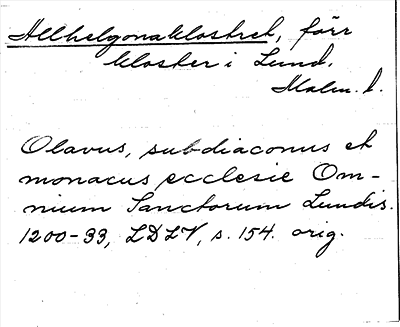 Allhelgonaklostret, förr
kloster i Lund.
Malm. l.
Olavus, subdiaconus et
monacus ecclesie Om-
nium Sanctorum Lundis.
1200-33, LDLV, s. 154. orig.